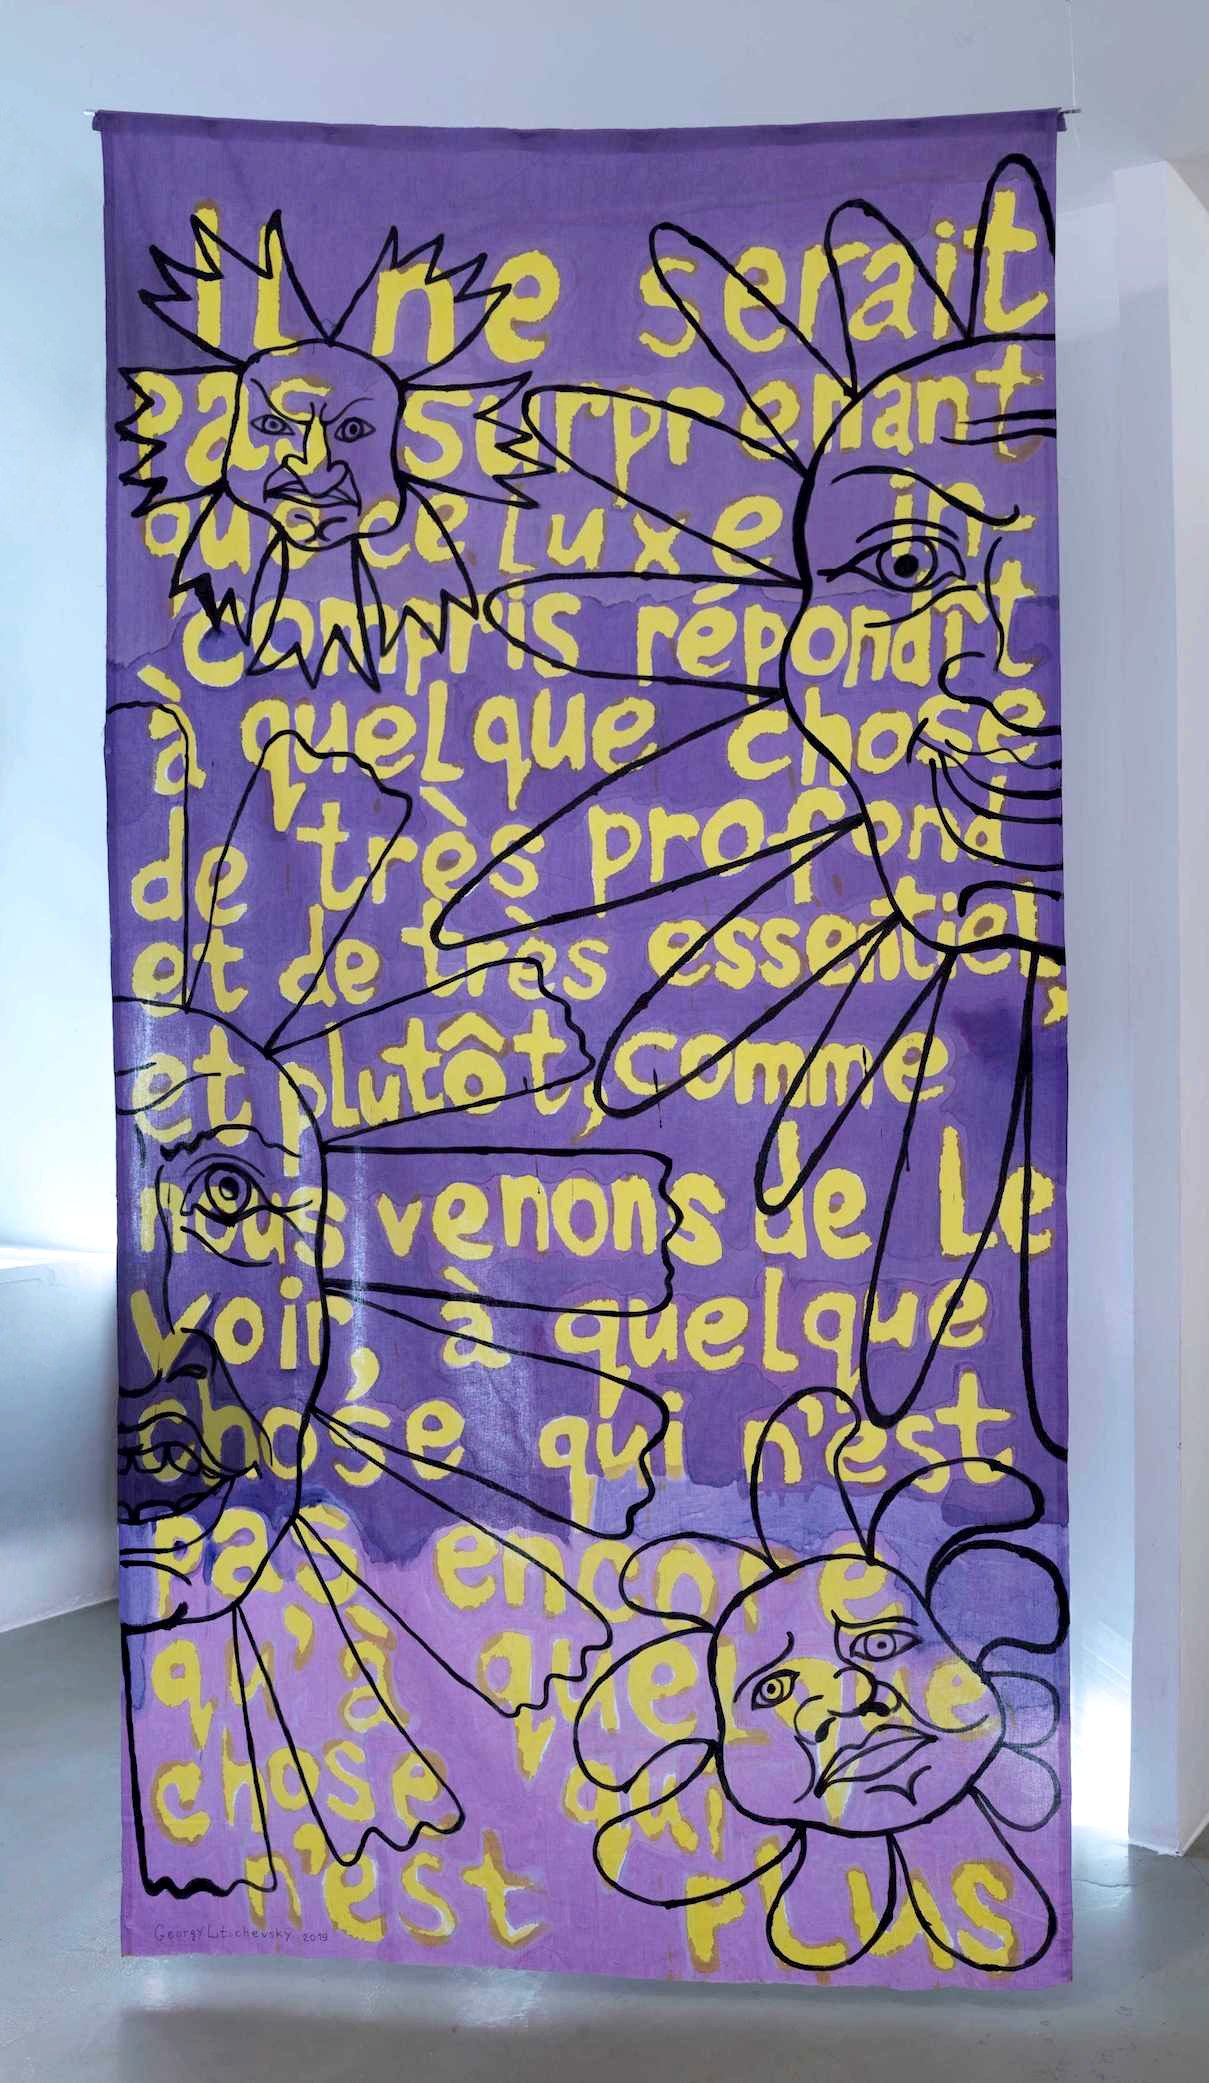 il ne serait
pas surprenant
que ce luxe in-
compris répondît
à quelque chose
de très profond
et de très essentiel,
et plutôt, comme
nous venons de Le
voir, à quelque
chose qui n'est
pas encore
qu'à quelque
chose qui
n'est PLUS
Georgy Litichevsky 2019